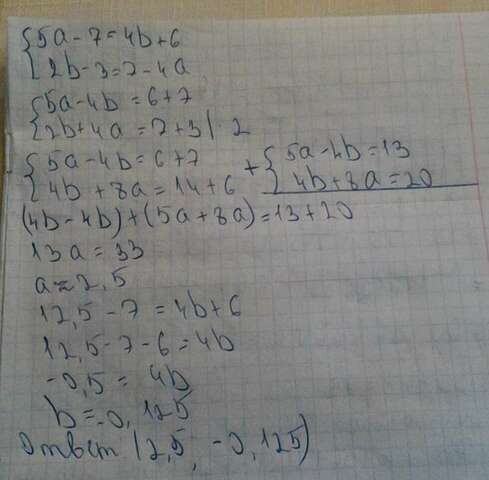 {5a-7=4b+6
{2b-3=7-4a
{5a-4b=6+7
{2b+4a=7+3|·2
{5a-4b=6+7
{4b+8a=14+6
+{5a-4b=13
{4b+8a=20
(4b-4b)+(5a+8a)=13+20
13a=33
a≈2,5
12,5-7=4b+6
12,5-7-6=4b
-0,5=4b
b=-0,125
Ответ (2,5, -0,125)